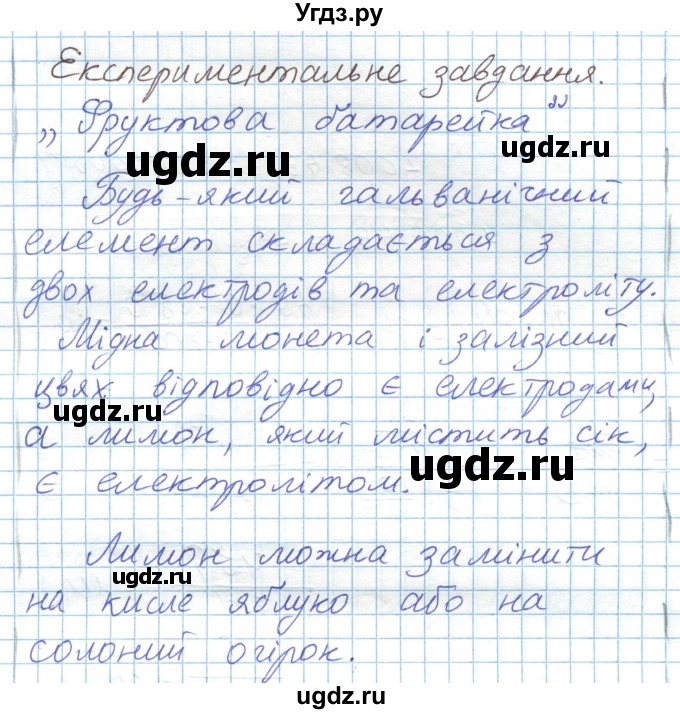 Угдз.ру
Експериментальне завдання.
„Фруктова батарейка"
ugdz.ru ugdz.ru
Будь-який гальванічний
елемент складається з
двох електродів та електроліту.
Мідна монета і залізний
цвях відповідно є електродами,
ugdz.ru
а лимон, який містить сік,
ugdz.ru
є електролітом.
Лимон можна замінити
ugdz.ru
на кисле яблуко або на
солоний огірок.
ugdz.ru